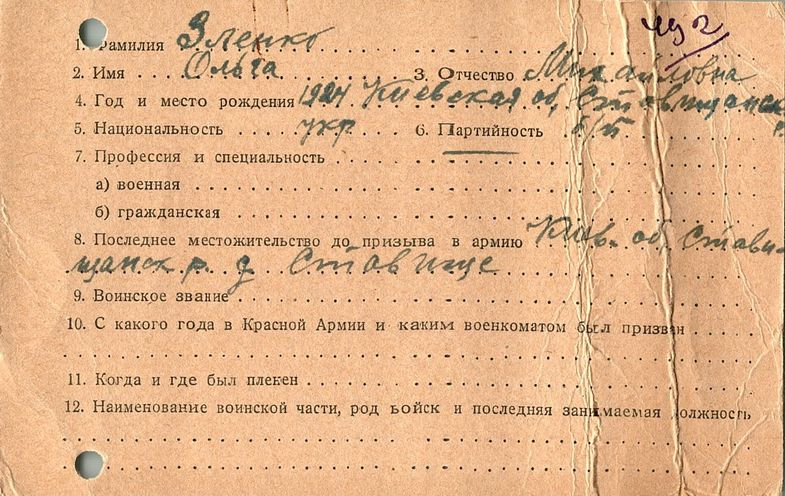 492
1. Фамилия Зленко
2. Имя Ольга 3. Отчество Михайловна
4. Год и место рождения 1924 Киевская об, Ставищанск
5. Национальность укр 6. Партийность б/п р.
7. Профессия и специальность
а) военная
б) гражданская
8. Последнее местожительство до призыва в армию Киев. об Стави-
щанск р. д Ставище
9. Воинское звание
10. С какого года в Красной Армии и каким военкоматом был призван
11. Когда и где был плекен
12. Наименование воинской части, род войск и последняя занимаемая должность